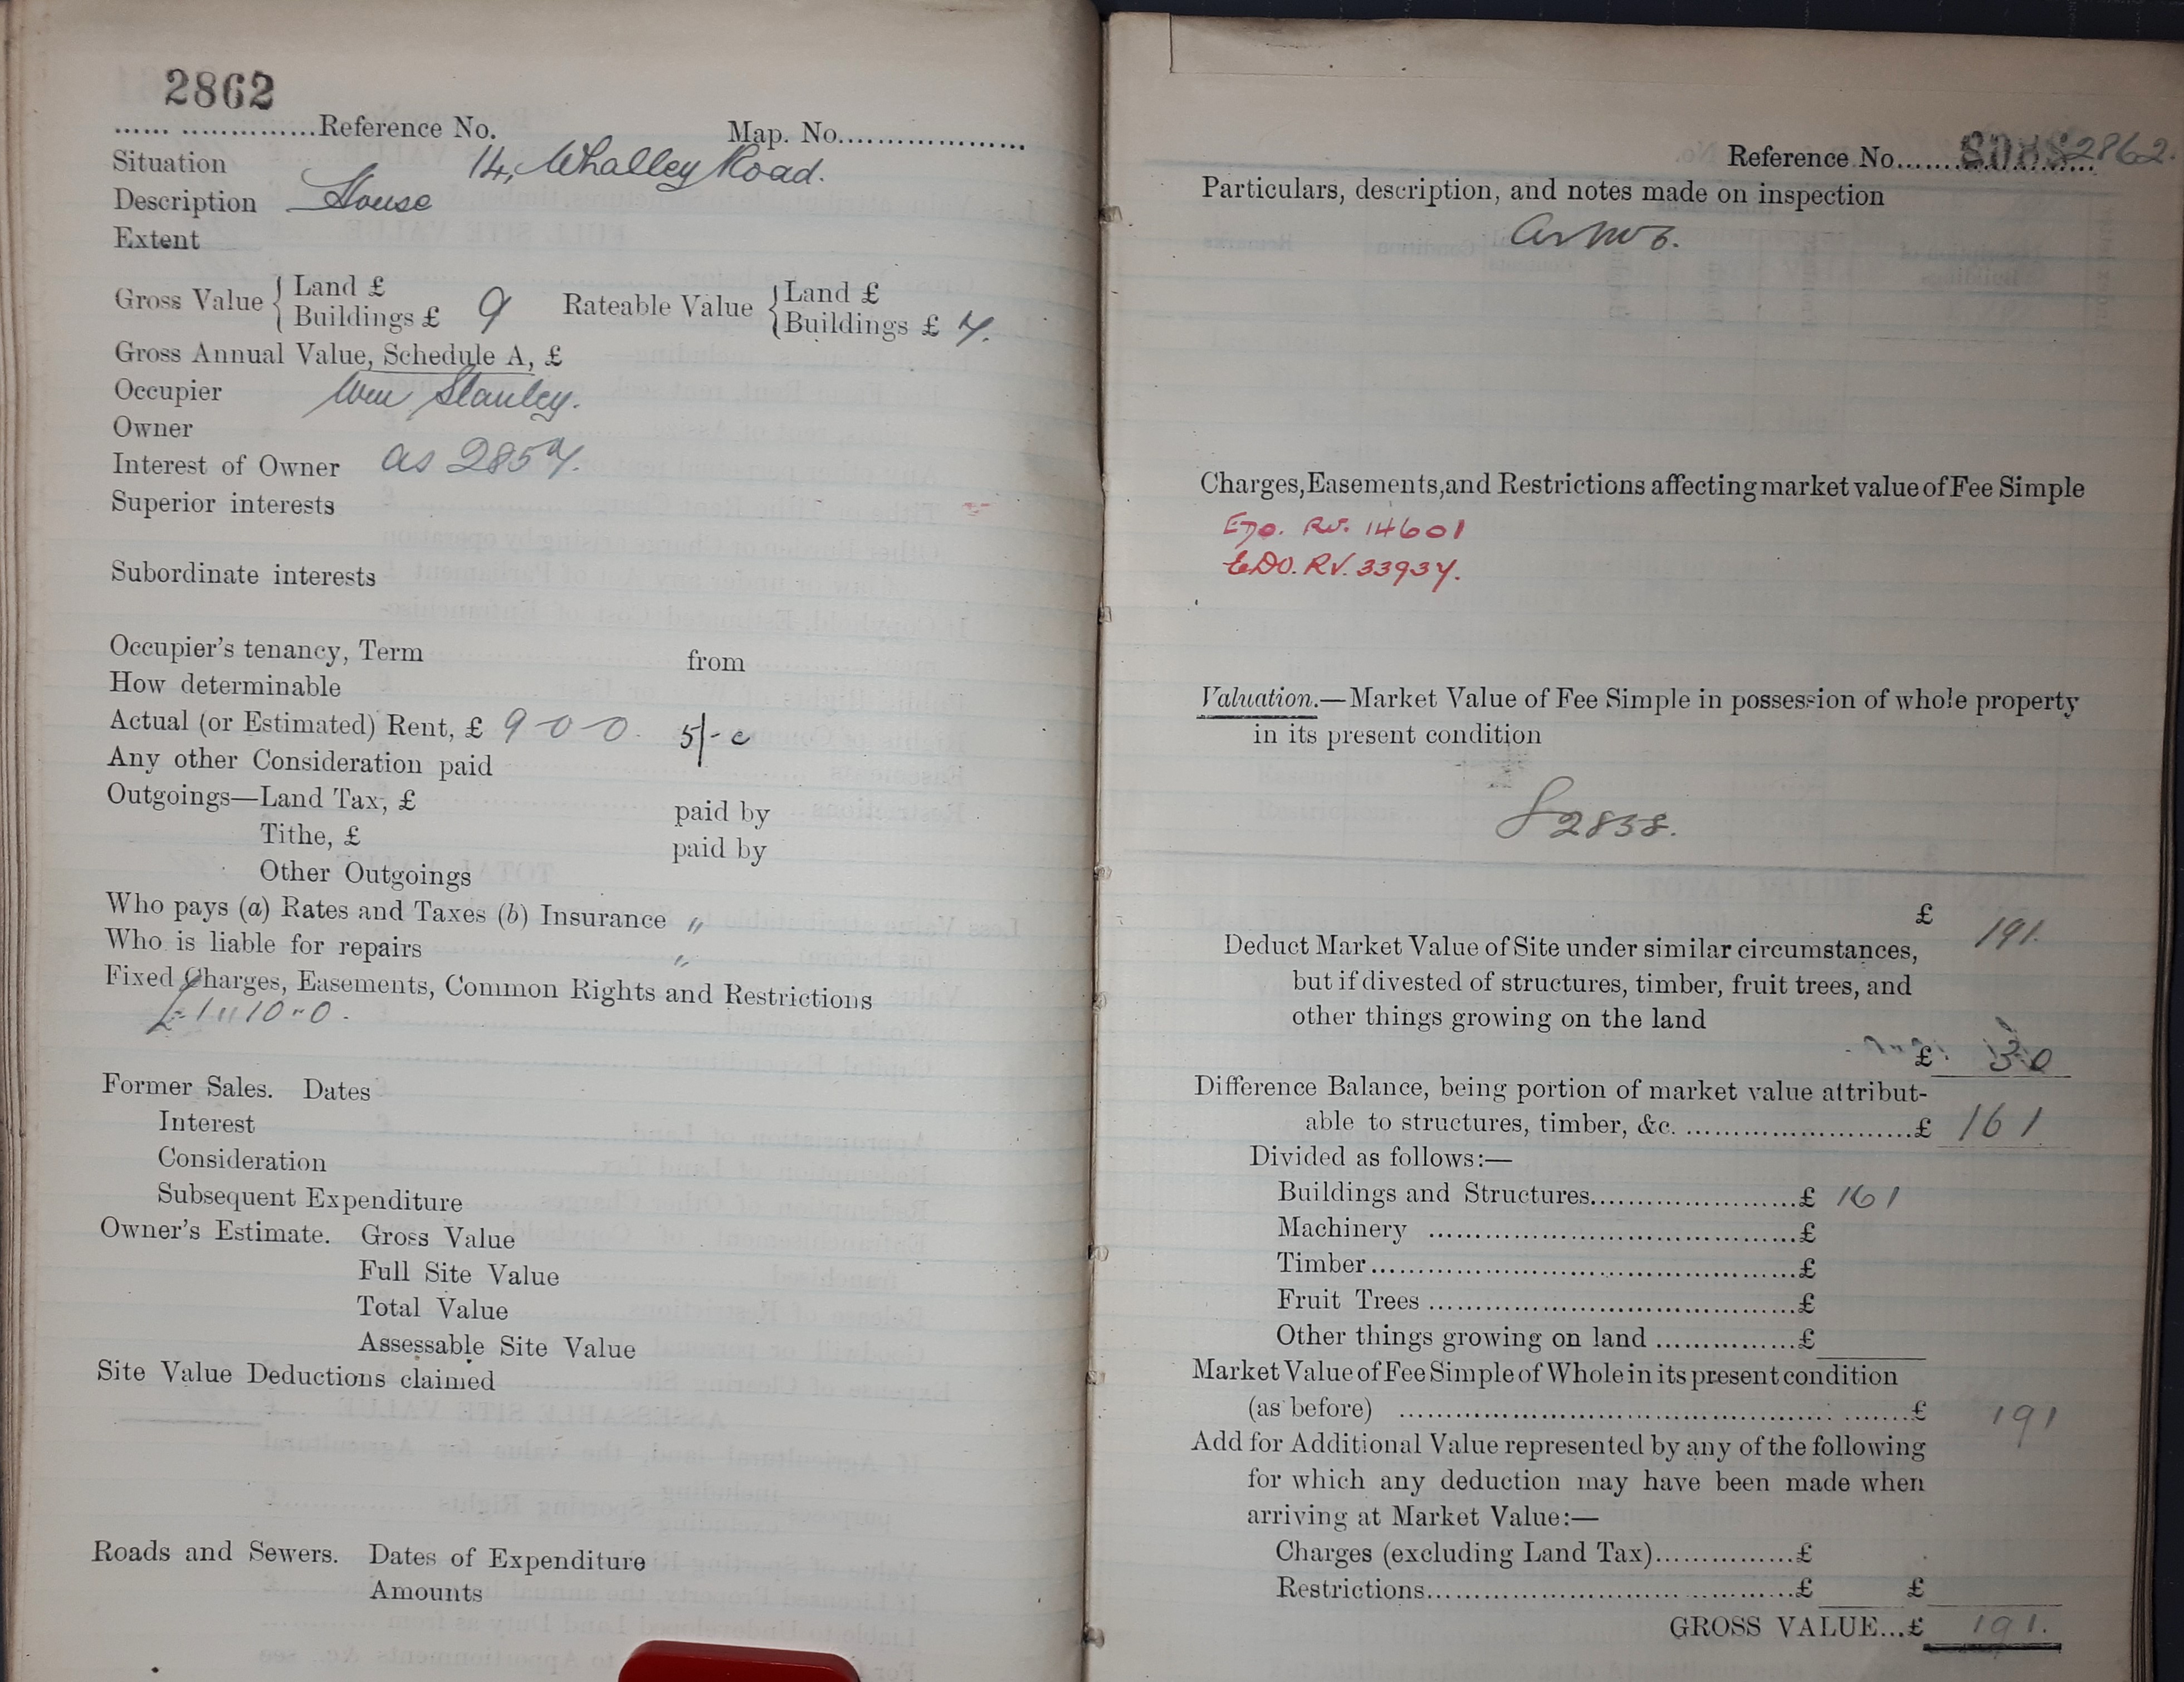 2862
...... ...............Reference No. Map. No....................
Situation 14, Whalley Road.
Description House
Extent
Gross Value { Land £
Buildings £ 9
Rateable Value { Land £
Buildings £ 7.
Gross Annual Value, Schedule A, £
Occupier Wm Stanley.
Owner
Interest of Owner as 2857.
Superior interests
Subordinate interests
Occupier's tenancy, Term from
How determinable
Actual (or Estimated) Rent, £ 9-0-0. 5/- c
Any other Consideration paid
Outgoings—Land Tax, £ paid by
Tithe, £ paid by
Other Outgoings
Who pays (a) Rates and Taxes (b) Insurance "
Who is liable for repairs "
Fixed Charges, Easements, Common Rights and Restrictions
£1"10"0.
Former Sales. Dates
Interest
Consideration
Subsequent Expenditure
Owner's Estimate. Gross Value
Full Site Value
Total Value
Assessable Site Value
Site Value Deductions claimed
Roads and Sewers. Dates of Expenditure
Amounts
Reference No. 2862.
Particulars, description, and notes made on inspection
Charges, Easements, and Restrictions affecting market value of Fee Simple
RV. 14601
RV. 33937.
Valuation.—Market Value of Fee Simple in possession of whole property
in its present condition
2858.
£ 191.
Deduct Market Value of Site under similar circumstances,
but if divested of structures, timber, fruit trees, and
other things growing on the land
£ 30
Difference Balance, being portion of market value attribut-
able to structures, timber, &c. ..........................£ 161
Divided as follows:—
Buildings and Structures........................£ 161
Machinery ..........................................£
Timber................................................£
Fruit Trees ..........................................£
Other things growing on land ................£
Market Value of Fee Simple of Whole in its present condition
(as before) ..................................................... .......£ 191
Add for Additional Value represented by any of the following
for which any deduction may have been made when
arriving at Market Value:—
Charges (excluding Land Tax)................£
Restrictions............................. ...........£ £
GROSS VALUE...£ 191.